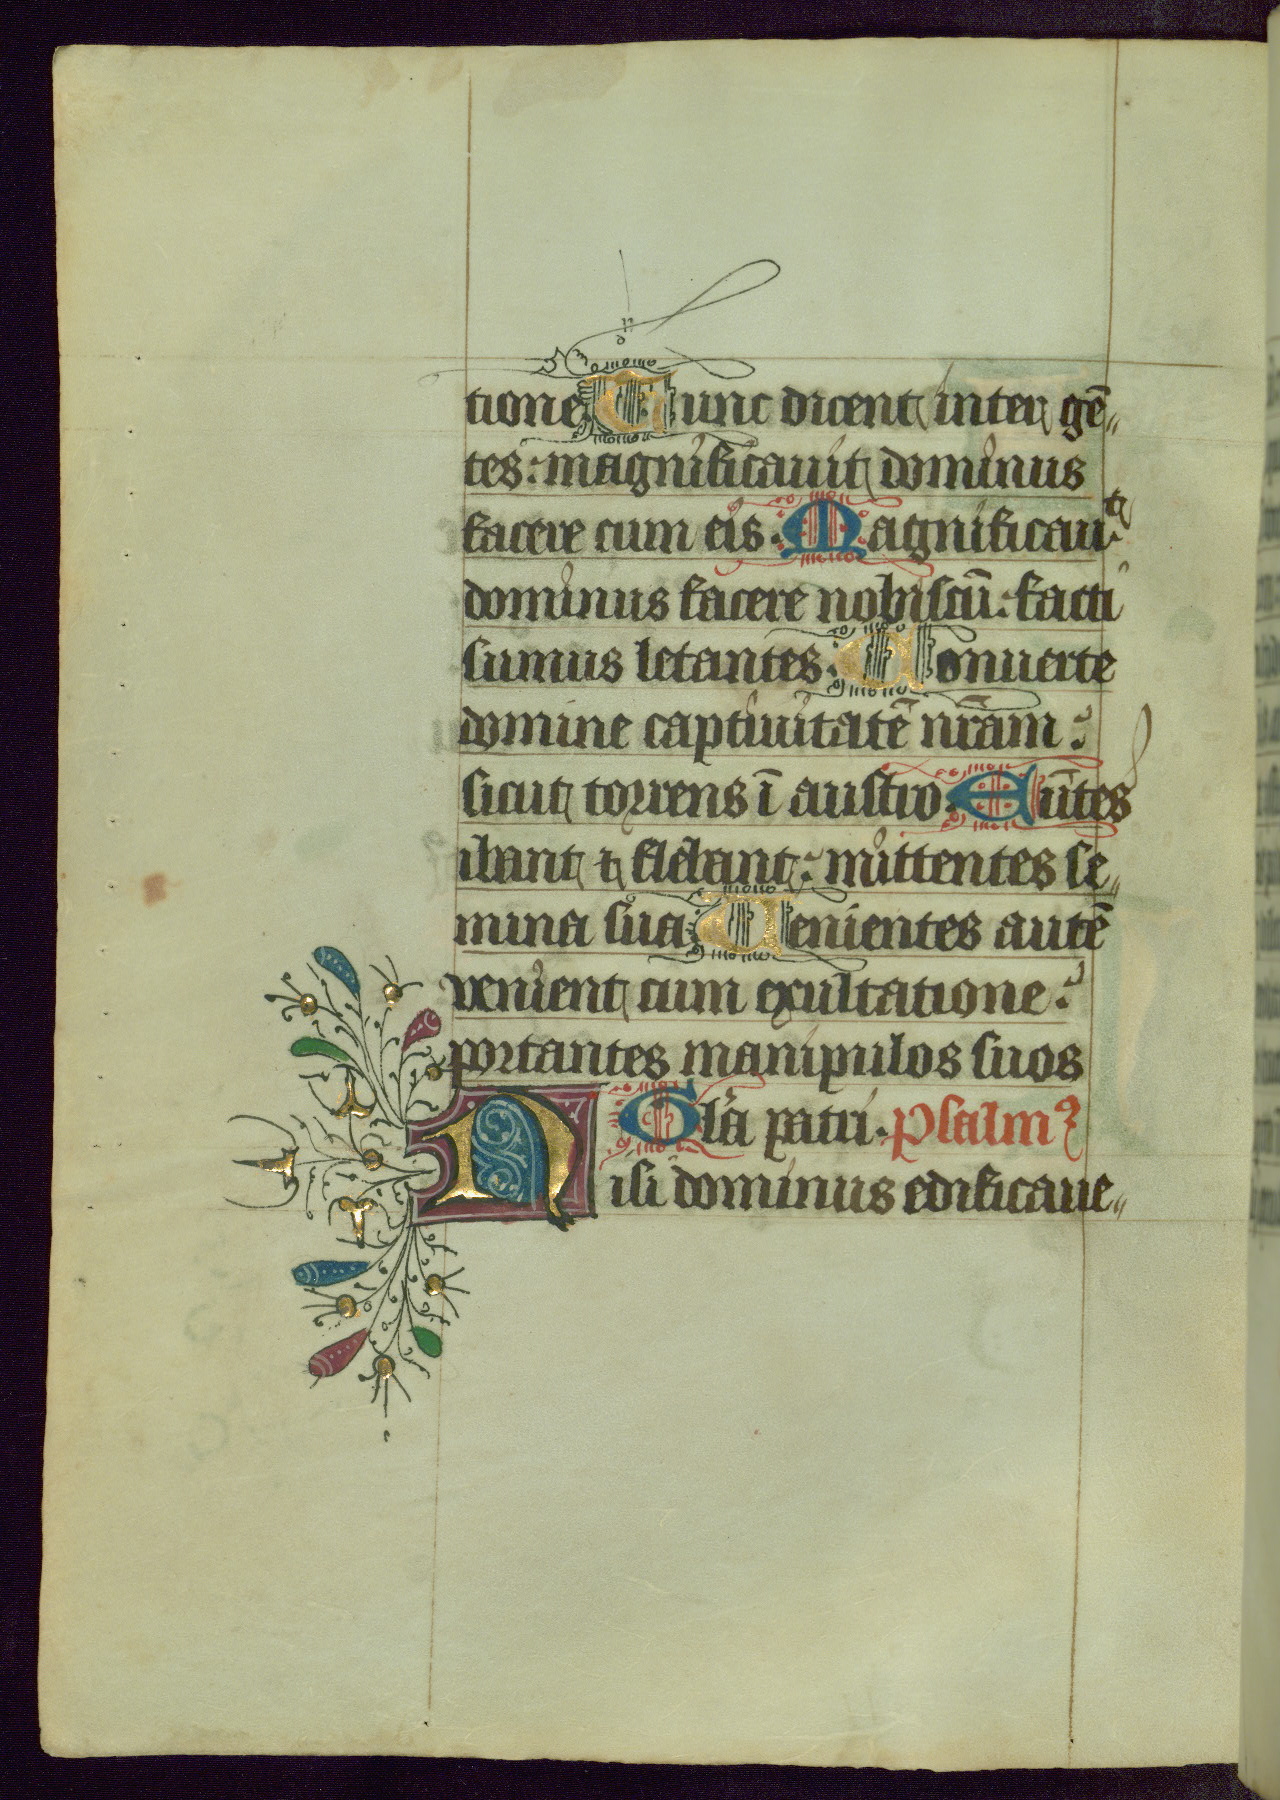 tione Tunc dicent inter gē„
tes: magnificauit dominus
facere cum eis. Magnificauit
dominus facere nobiscū: facti
sumus letantes. Conuerte
domine captiuitatē nr̄am:
sicut torrens ī austro. Eūtes
ibant ⁊ flebant: mittentes se„
mina sua Uenientes autē
uenient cum exultatione:
portantes manipulos suos
Gl̄a patri. Psalmꝰ
Nisi dominus edificaue„